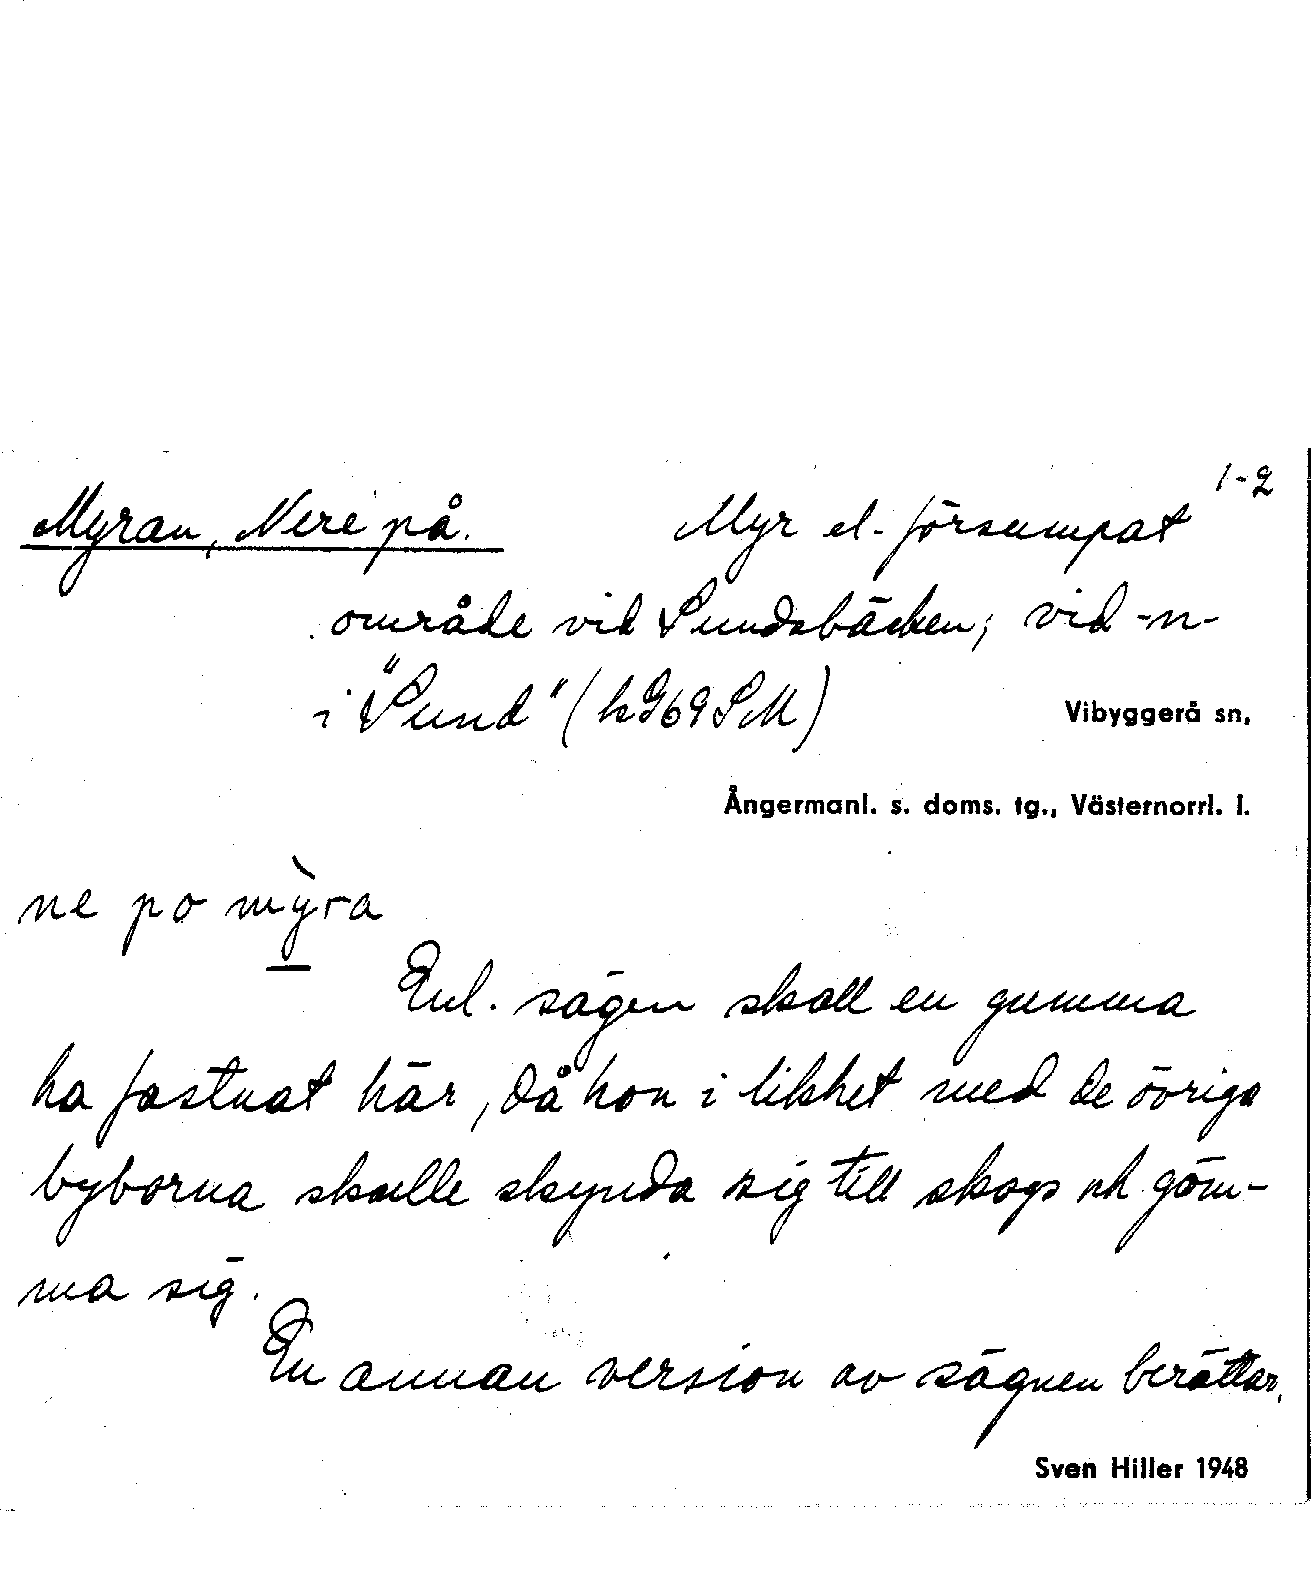 1-2
Myran, Nere på. Myr el. försumpat
område vid Sundsbäcken; vid -n-
i "Sund" (kG69SM)
Vibyggerå sn,
Ångermanl. s. doms. tg., Västernorrl. l.
ne po mỳra
Enl. sägen skall en gumma
ha fastnat här, då hon i likhet med de övriga
byborna skulle skynda sig till skogs och göm-
ma sig.
En annan version av sägnen berättar,
Sven Hiller 1948